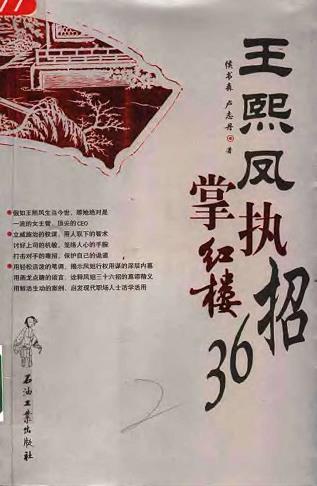 77
王熙凤执掌红楼36招
侯书森 卢志丹 著
●假如王熙凤生当今世,那她绝对是
一流的女主管,顶尖的CEO
●立威施治的权谋,用人驭下的智术
讨好上司的机敏,笼络人心的手腕
打击对手的毒招,保护自己的诡道
●用轻松活泼的笔调,揭示凤姐行权用谋的深层内幕
用画龙点睛的箴言,诠释凤姐三十六招的真谛精义
用鲜活生动的案例,启发现代职场人士活学活用
石油工业出版社
2